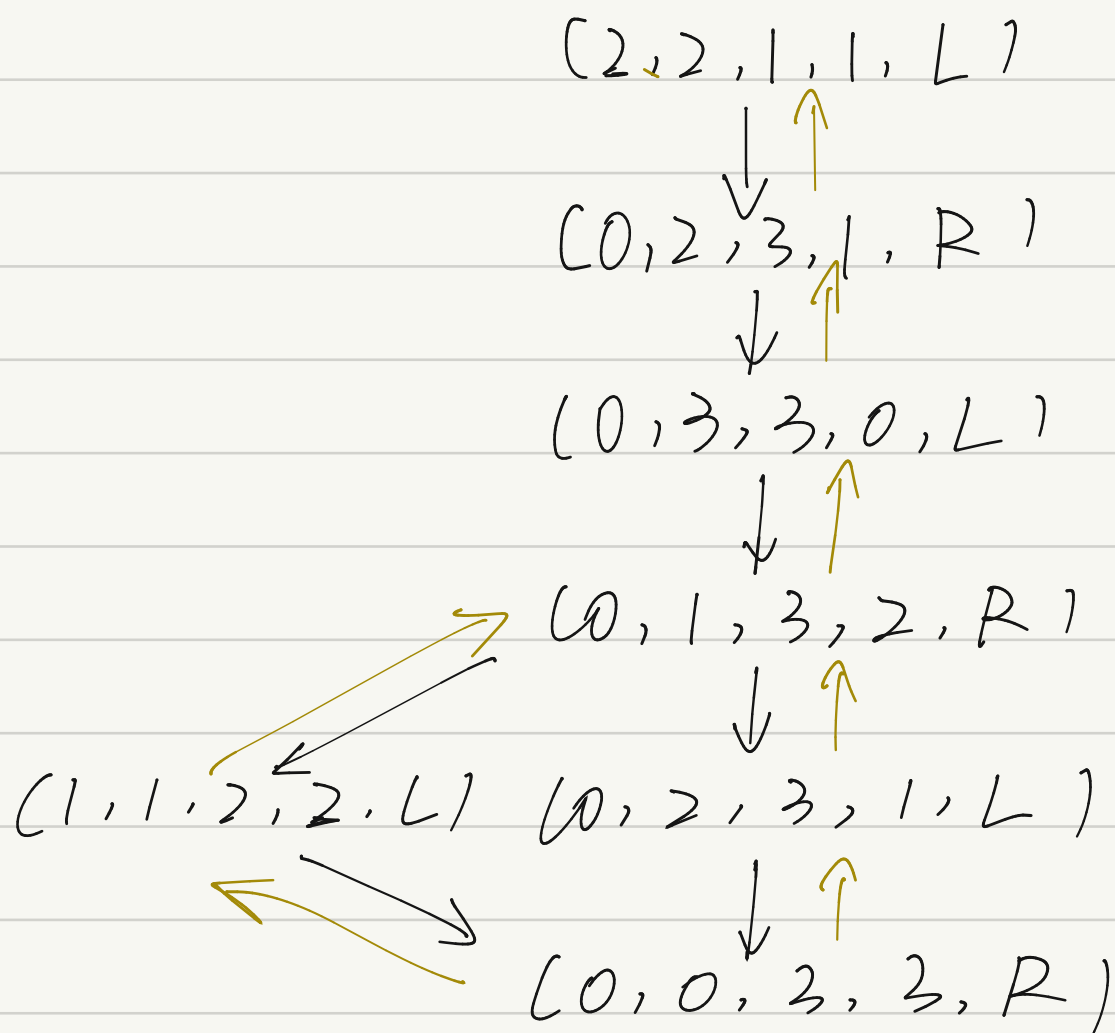 (2,2,1,1,L)
(0,2,3,1,R)
(0,3,3,0,L)
(0,1,3,2,R)
(1,1,2,2,L) (0,2,3,1,L)
(0,0,3,3,R)